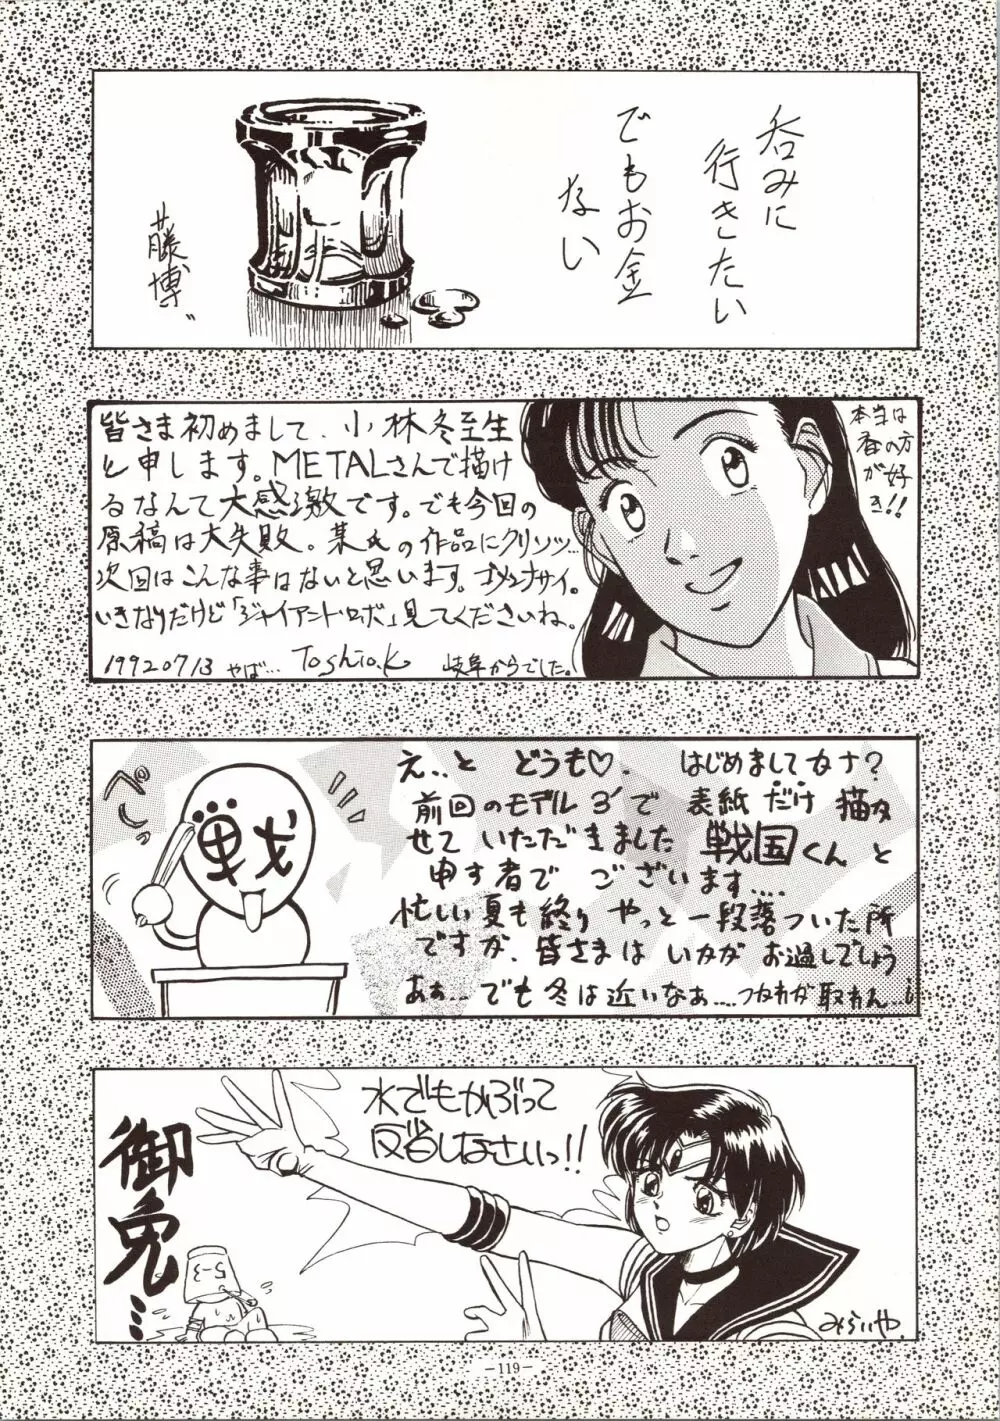 呑みに
行きたい
でもお金
ない
藤博
皆さま初めまして、小林冬至生
と申します。METALさんで描け
るなんて大感激です。でも今回の
原稿は大失敗。某氏の作品にクリソツ…
次回はこんな事はないと思います。ゴメンナサイ。
いきなりだけど「ジャイアント・ロボ」見てくださいね。
1992 07 13 やば… Toshio.K 岐阜からでした。
本当は
香の方
が好
き!!
ぺしっ
戦
え‥と どうも♡. はじめましてカナ?
前回のモデル3'で 表紙だけ 描カ
せて いただきました 戦国くんと
申す者で ございます....
忙しい夏も終り やっと一段落ついた所
ですが、皆さまは いかが お過しでしょう
あぁ…でも冬は近いなぁ....つかれが取れん…
水でもかぶって
反省しなさいっ!!
御免…
5-3
みらいや
－119－